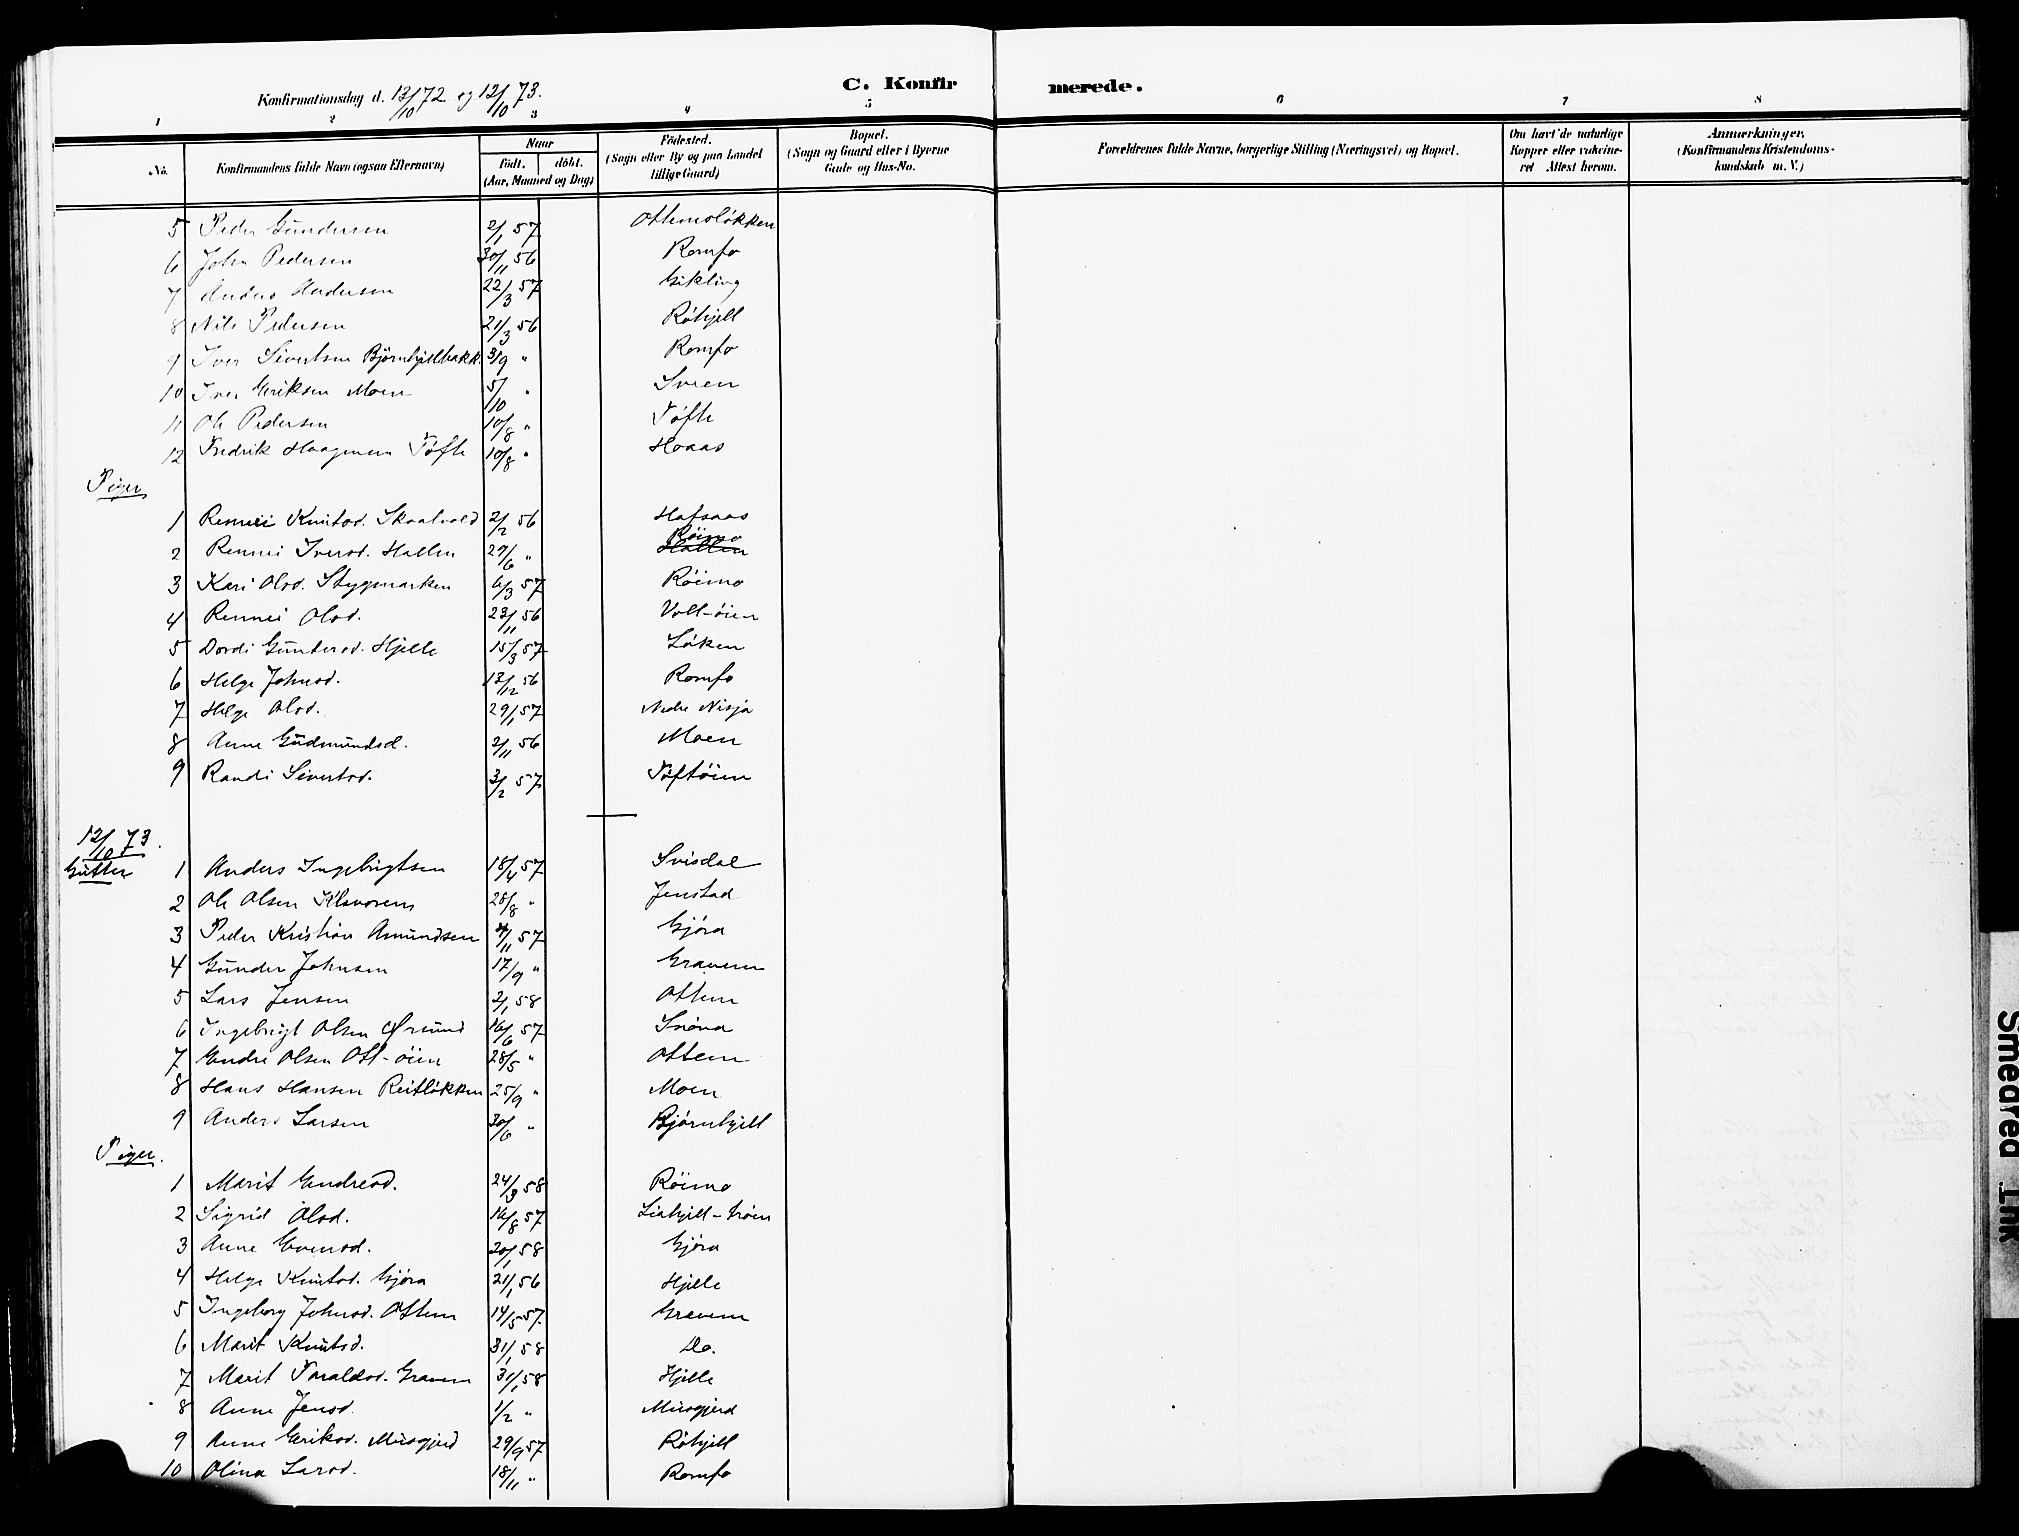 Konfirmationsdag d. 13/10 72 og 12/10 73.
C. Konfir merede.
1 2 3 4 5 6 7 8
No.
Konfirmandens fulde Navn (ogsaa Efternavn)
Naar
født. døbt.
(Aar, Maaned og Dag)
Fødested.
(Sogn eller By og paa Landet
tillige Gaard)
Bopæl.
(Sogn og Gaard eller i Byerne
Gade og Hus-No.
Forældrenes fulde Navne, borgerlige Stilling (Næringsvei) og Bopæl.
Om havt de naturlige
Kopper eller vakcine-
ret Attest herom.
Anmærkninger.
(Konfirmandens Kristendoms-
kundskab m. V.)
5 Peder Gundersen 2/1 57 Ottemsløkken
6 John Pedersen 30/11 56 Romfo
7 Anders Andersen 22/3 57 Gikling
8 Nils Pedersen 21/3 56 Røhjell
9 Iver Sivertsen Bjørnhjellbakk. 3/9 " Romfo
10 Iver Eriksen Moen 5/10 " Svren
11 Ole Pedersen 10/8 " Tøfte
12 Fredrik Haagensen Tøfte 10/8 " Hoaas
Piger
1 Rennei Knutsd. Skaalvold 2/2 56 Hafsaas
2 Rennei Iversd. Hallen 29/6 " Røimo Hallen
3 Kari Olsd. Stygmarken 6/3 57 Røimo
4 Rennei Olsd. 23/11 56 Voll-øien
5 Dordi Guntersd. Hjelle 15/3 57 Løken
6 Helge Johnsd. 13/12 56 Romfo
7 Helge Olsd. 29/1 57 Nedre Nisja
8 Anne Gudmundsd. 2/11 56 Moen
9 Randi Sivertsd. 3/2 57 Tøftøien
12/10 73.
Gutter
1 Anders Ingebrigtsen 18/4 57 Svisdal
2 Ole Olsen Klevorens 28/8 " Jenstad
3 Peder Kristian Amundsen 4/11 57 Gjøra
4 Gunder Johnsen 17/9 " Gravem
5 Lars Jensen 2/1 58 Ottem
6 Ingebrigt Olsen Ørsund 16/6 57 Snøva
7 Endre Olsen Ott-øien 28/5 " Ottem
8 Hans Hansen Reitløkken 25/9 " Moen
9 Anders Larsen 30/6 " Bjørnhjell
Piger.
1 Marit Endresd. 24/3 58 Røimo
2 Sigrid Olsd. 16/8 57 Liahjell-trøen
3 Anne Evensd. 20/1 58 Gjøra
4 Helge Knutsd. Gjøra 21/1 56 Hjelle
5 Ingeborg Johnsd. Ottem 14/5 57. Gravem
6 Marit Knutsd. 31/1 58 Do.
7 Marit Taraldsd. Gravem 31/1 58 Hjelle
8 Anne Jensd. 1/2 " Musgjerd
9 Anne Eriksd. Musgjerd 29/9 57 Røhjell
10 Olina Larsd. 18/11 " Romfo
Smeared Ink